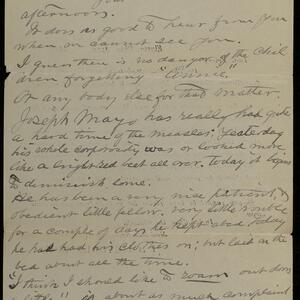 your
afternoons.
It does as good to hear from you
when we cannot see you.
I guess there is no danger of the Chil
dren forgetting "Annie"
Or any body else for that matter.
Joseph Mayo has really had quite
a hard time of the measles. Yesterday
his whole corporosity was or looked more
like a bright red beet all over. today it began
to diminish some.
He has been a very nice patient, &
obedient little fellow. very little trouble
for a couple of days he kept abed today
he had had his clothes on; but laid on the
bed about all the time.
"I think I should like to roam out doors
little" is about as much complaint